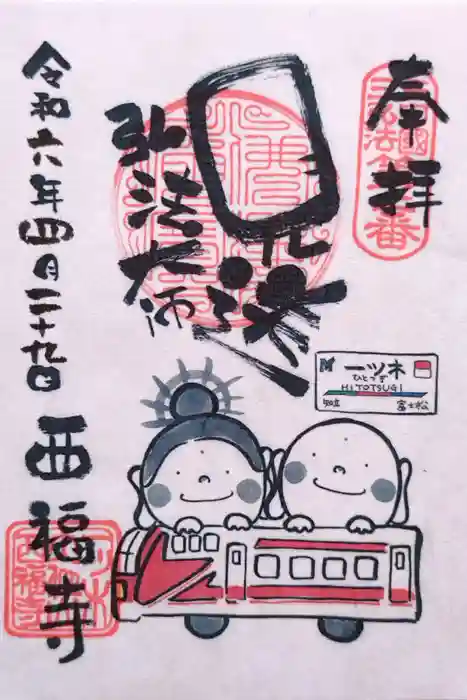 奉拝
見送
弘法大師
令和六年四月二十九日
西福寺
一ツ木
ひとつぎ
HITOTSUGI
知立 富士松